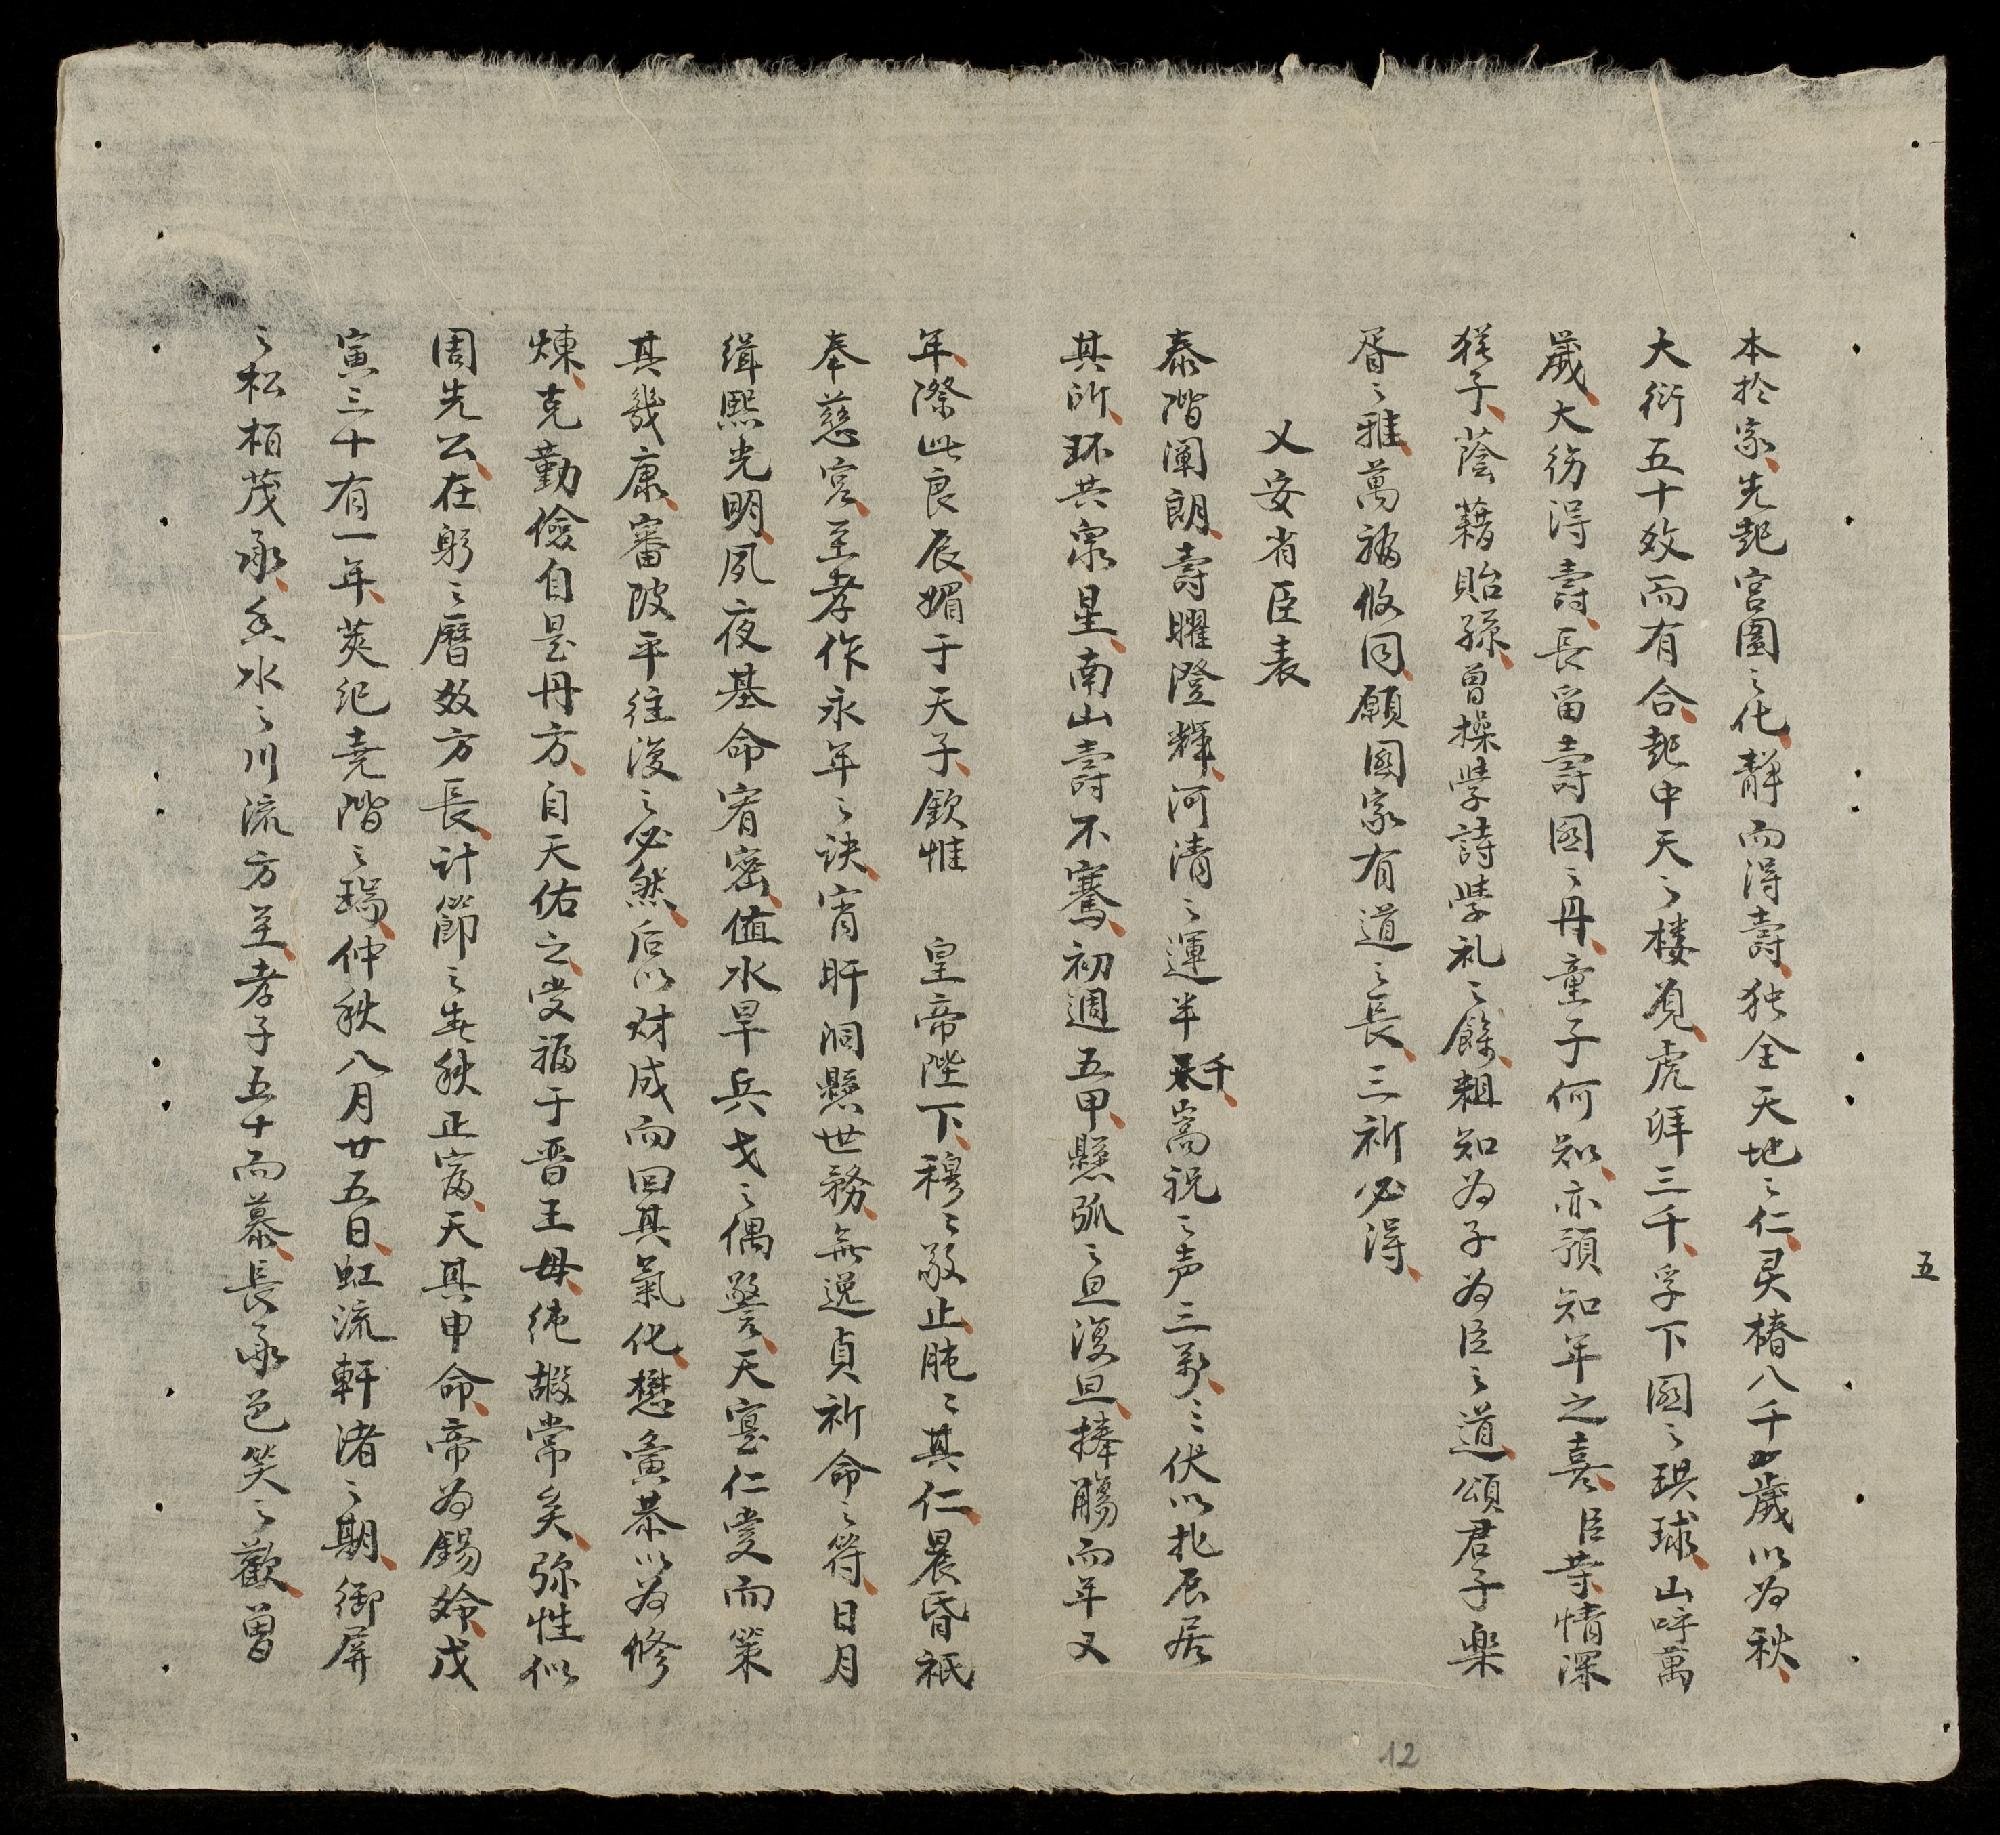 五
本於家先起宮圍〻化静而淂壽独全天地〻仁灵椿八千歲以为秋
大衍五十效而有合起中天〻楼覓虎拜三千孚下國〻珙球山呼萬
歲大衍淂壽長留壽國〻丹童子何知亦預知年之喜臣等情深
猶子蔭藉貽孫曾操學詩學礼〻餘粗知为子为臣〻道頌君子樂
胥〻雅萬福攸同願國家有道〻長三祈必淂
乂安省臣表
泰階闡朗壽曜瑩輝河清〻運半千嵩祝〻声三萬〻伏以北辰居
其所环共衆星南山壽不騫初週五甲懸弧〻旦復旦捧觴而年又
年際此良辰媚于天子欽惟 皇帝陛下穆〻敬止肫〻其仁晨昏祇
奉慈宮至孝作永年〻訣宵旰洞懸世務無逸貞祈命〻符日月
緝熙光明夙夜基命宥密值水旱兵戈〻偶警天寔仁愛而策
其幾康審陂平往復〻必然后以财成而回其氣化懋寅恭以为修
煉克勤儉自是丹方自天佑之受福于晋王母純嘏常矣弥性似
周先公在躬〻曆效方長計節〻春秋正富天其申命帝为錫齡戊
寅三十有一年蓂纪尭階〻瑞仲秋八月廿五日虹流軒渚〻期御屏
〻松栢茂承香水〻川流方至孝子五十而慕長承色笑〻歡曽
12